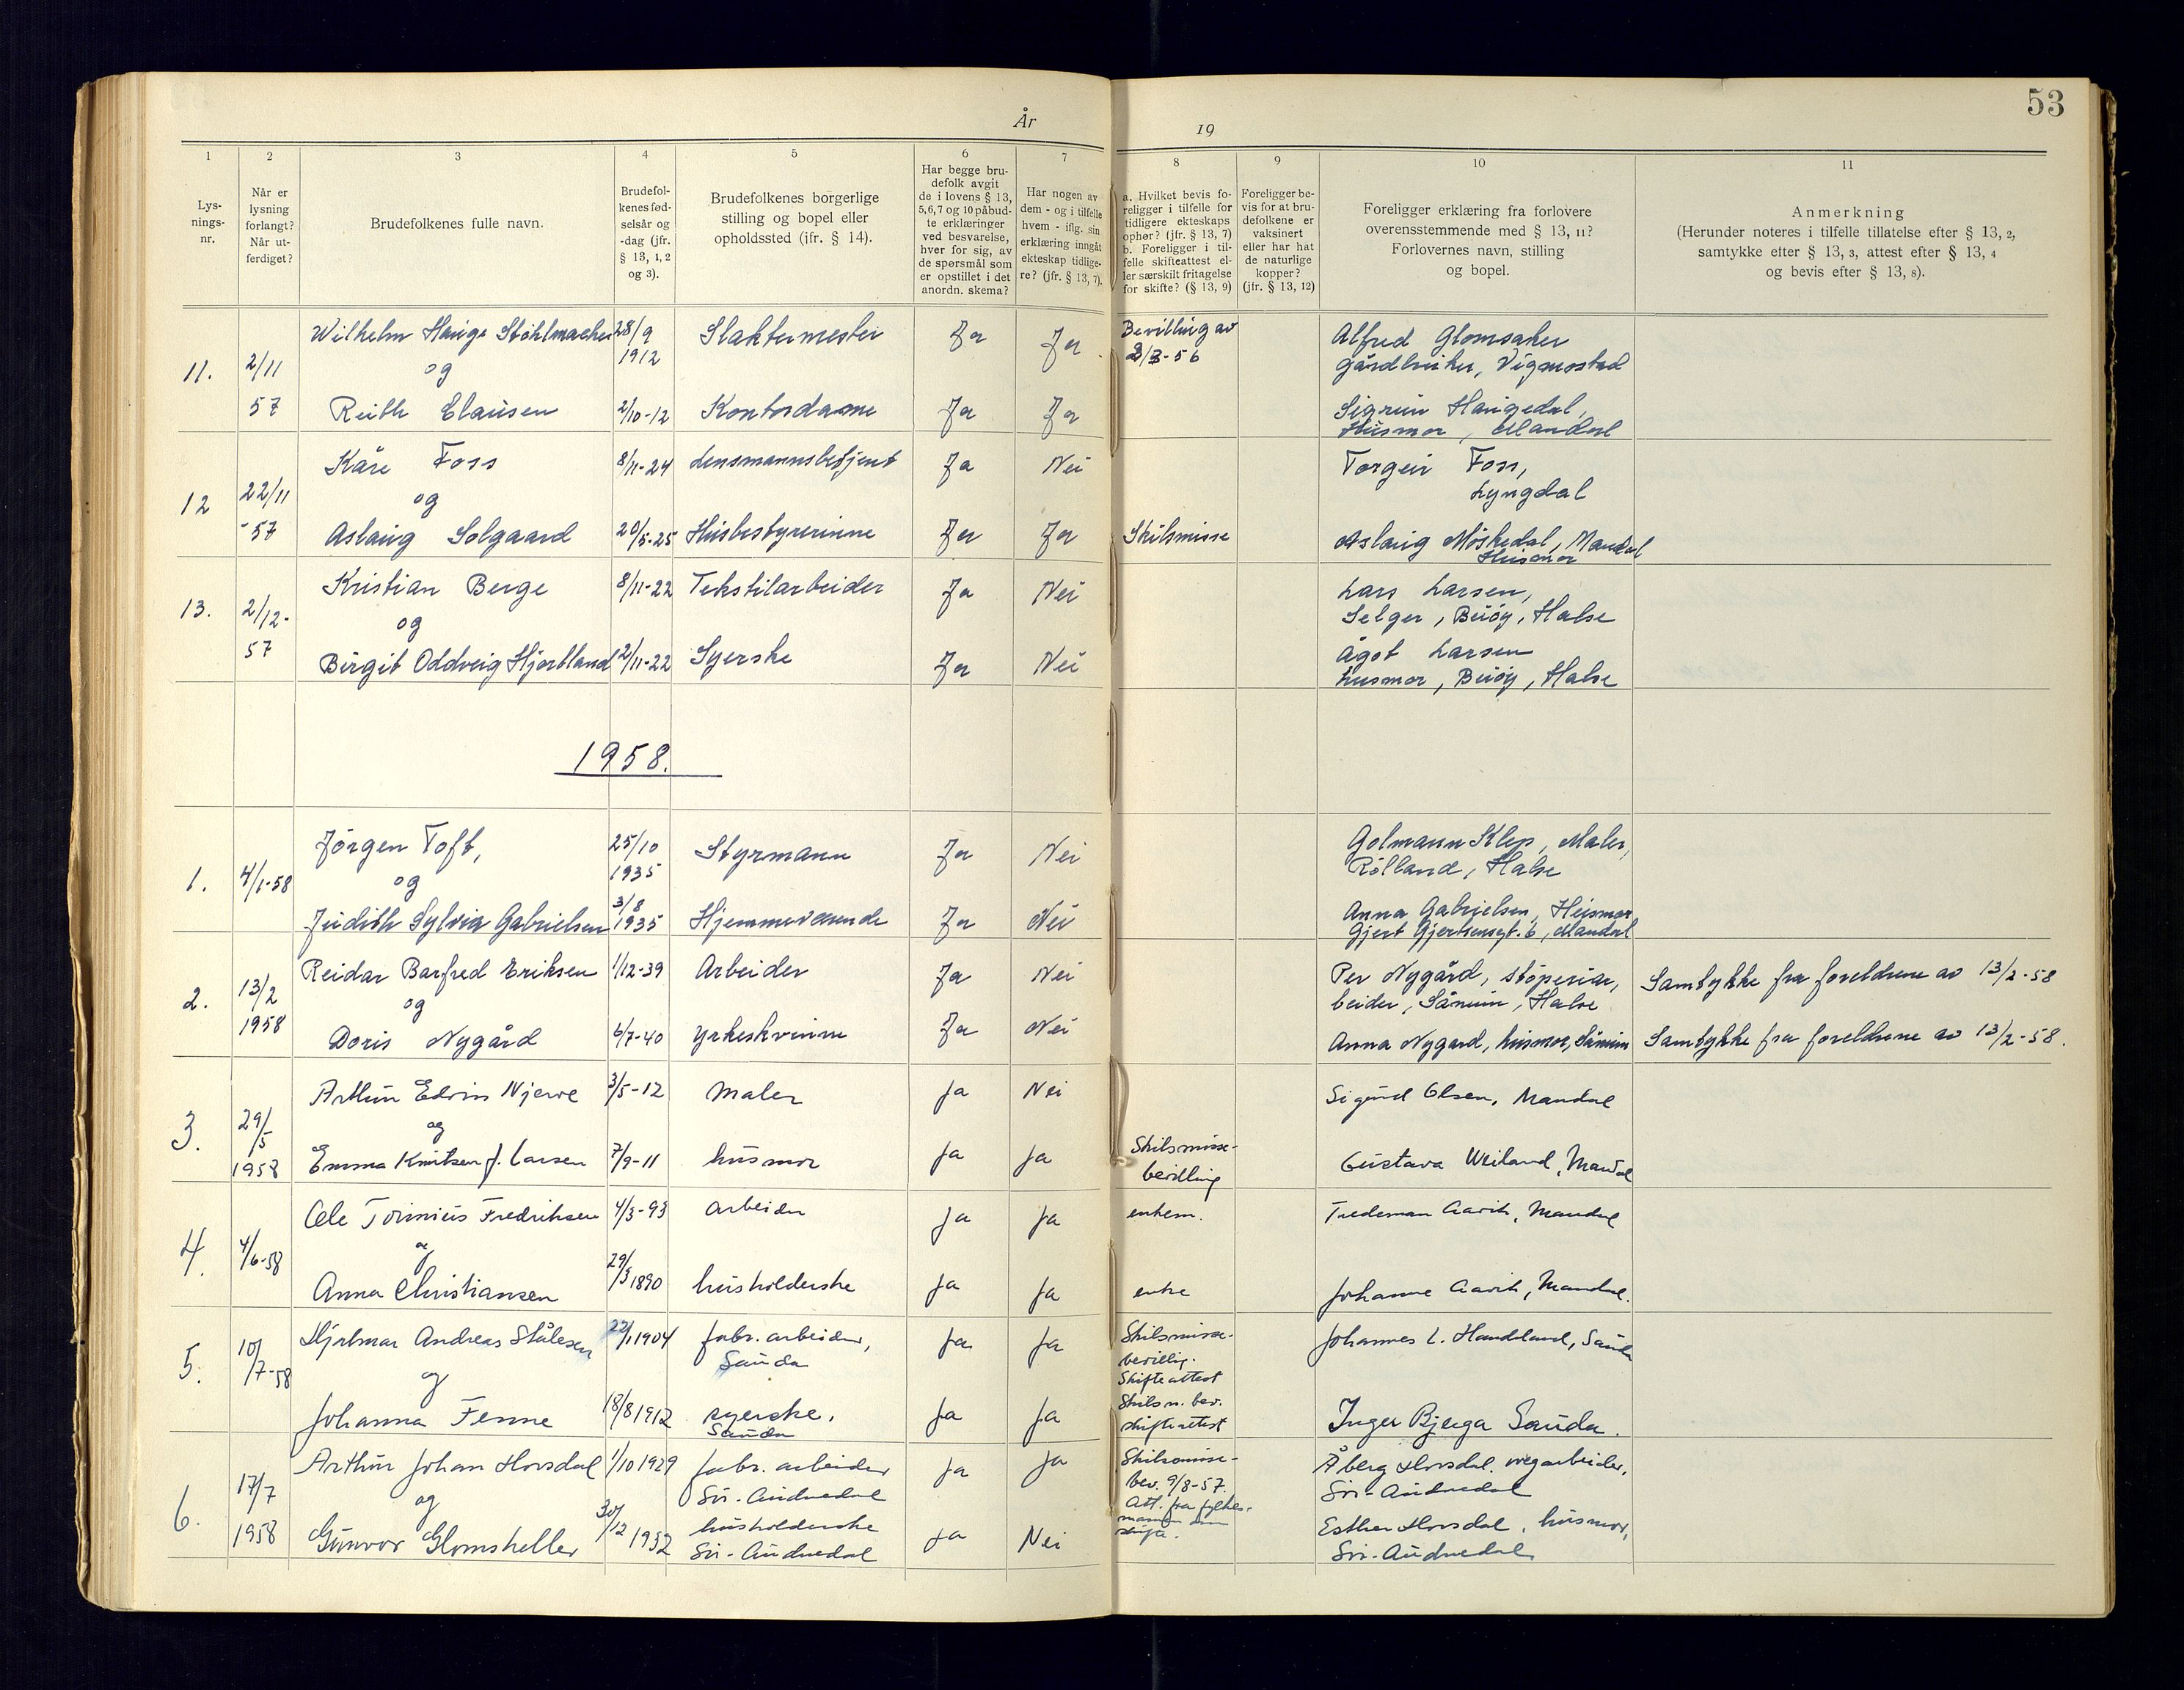 År 19
53
1
Lys-
nings-
nr.
2
Når er
lysning
forlangt?
Når ut-
ferdiget?
3
Brudefolkenes fulle navn.
4
Brudefol-
kenes fød-
selsår og
-dag (jfr.
§ 13, 1, 2
og 3).
5
Brudefolkenes borgerlige
stilling og bopel eller
opholdssted (jfr. § 14).
6
Har begge bru-
defolk avgit
de i lovens § 13,
5,6,7 og 10 påbud-
te erklæringer
ved besvarelse,
hver for sig, av
de spørsmål som
er opstillet i det
anordn. skema?
7
Har nogen av
dem - og i tilfelle
hvem - iflg. sin
erklæring inngått
ekteskap tidlige-
re? (jfr. § 13, 7).
8
a. Hvilket bevis fo-
religger i tilfelle for
tidligere ekteskaps
ophør? (jfr. § 13, 7)
b. Foreligger i til-
felle skifteattest el-
ler særskilt fritagelse
for skifte? (§ 13, 9)
9
Foreligger be-
vis for at bru-
defolkene er
vaksinert
eller har hat
de naturlige
kopper?
(jfr. § 13, 12)
10
Foreligger erklæring fra forlovere
overensstemmende med § 13, 11?
Forlovernes navn, stilling
og bopel.
11
Anmerkning
(Herunder noteres i tilfelle tillatelse efter § 13, 2,
samtykke efter § 13, 3, attest efter § 13, 4
og bevis efter § 13, 8).
11. 2/11 57
Wilhelm Hauge Stöhlmacher 28/9 1912 Slaktermester Ja Ja Bevilling av 2/3-56 Alfred Glomsaker
gårdbruker, Vigmostad
og
Ruth Clausen 2/10-12 Kontordame Ja Ja Sigrun Haugedal,
Husmor, Mandal
12 22/11 -57
Kåre Foss 8/11-24 Lensmannsbetjent Ja Nei Torgeir Foss,
Lyngdal
og
Aslaug Solgaard 20/5-25 Husbestyrerinne Ja Ja Skilsmisse Aslaug Møskedal, Mandal
Husmor
13. 2/12- 57
Kristian Berge 8/11-22 Tekstilarbeider Ja Nei Lars Larsen,
Selger, Buøy, Halse
og
Birgit Oddveig Hjortland 2/11-22 Syerske Ja Nei Ågot Larsen
husmor, Buøy, Halse
1958.
1. 4/1-58
Jörgen Toft, 25/10 1935 Styrmann Ja Nei Golmann Klep, Maler,
Rölland, Halse
og
Judith Sylvia Gabrielsen 3/8 1935 Hjemmeværende Ja Nei Anna Gabrielsen, Husmor
Gjert Gjertsensgt. 6, Mandal
2. 13/2 1958
Reidar Barfred Eriksen 1/12-39 Arbeider Ja Nei Per Nygård, støperiar,
beider, Sånum, Halse Samtykke fra foreldrene av 13/2-58
og
Doris Nygård 6/7-40 yrkeskvinne Ja Nei Anna Nygard, husmor, Sånum Samtykke fra foreldrene av 13/2-58.
3. 29/5 1958
Arthur Edvin Njerve 3/5-12 maler Ja Nei Sigurd Olsen, Mandal
og
Emma Knutsen f. Larsen 7/9-11 husmor Ja Ja Skilsmisse-
bevilling Gustava Weiland, Mandal
4. 4/6-58
Ole Tominius Fredriksen 4/3-93 arbeider Ja Ja enkem. Tredeman Aavik, Mandal
og
Anna Christiansen 29/3 1890 husholderske Ja Ja enke Johanne Aavik, Mandal.
5. 10/7-58
Hjalmar Andreas Stålesen 22/1 1904 fabr. arbeider,
Sauda Ja Ja Skilsmisse-
bevillig.
Skifteattest Johannes L. Handeland, Sauda
og
Johanna Fenne 18/8 1912 syerske,
Sauda Ja Ja Skilsm. bev.
skifteattest Inger Bjerga Sauda.
6. 17/7 1958
Arthur Johan Horsdal 1/10 1929 fabr. arbeider
Sör-Audnedal Ja Ja Skilsmisse-
bev. 9/8-57.
Att. fra fylkes-
mannen om
skifte. Åberg Horsdal, vegarbeider,
Sör-Audnedal
og
Gunvor Glomsheller 30/12 1932 husholderske
Sör-Audnedal Ja Nei Esther Horsdal, husmor,
Sör-Audnedal